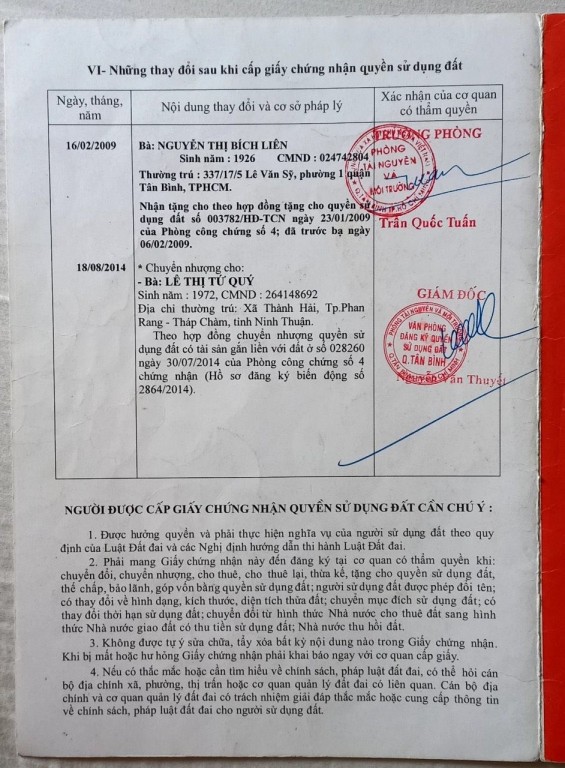 VI- Những thay đổi sau khi cấp giấy chứng nhận quyền sử dụng đất
Ngày, tháng, năm
Nội dung thay đổi và cơ sở pháp lý
Xác nhận của cơ quan có thẩm quyền
16/02/2009
Bà: NGUYỄN THỊ BÍCH LIÊN
Sinh năm : 1926 CMND : 024742804
Thường trú : 337/17/5 Lê Văn Sỹ, phường 1 quận
Tân Bình, TPHCM.
Nhận tặng cho theo hợp đồng tặng cho quyền sử
dụng đất số 003782/HĐ-TCN ngày 23/01/2009
của Phòng công chứng số 4; đã trước bạ ngày
06/02/2009.
TRƯỞNG PHÒNG
PHÒNG
TÀI NGUYÊN
VÀ
MÔI TRƯỜNG
Trần Quốc Tuấn
18/08/2014
* Chuyển nhượng cho:
- Bà: LÊ THỊ TỨ QUÝ
Sinh năm : 1972, CMND : 264148692
Địa chỉ thường trú: Xã Thành Hải, Tp.Phan
Rang - Tháp Chàm, tỉnh Ninh Thuận.
Theo hợp đồng chuyển nhượng quyền sử
dụng đất có tài sản gắn liền với đất ở số 028260
ngày 30/07/2014 của Phòng công chứng số 4
chứng nhận (Hồ sơ đăng ký biến động số
2864/2014).
GIÁM ĐỐC
VĂN PHÒNG
ĐĂNG KÝ QUYỀN
SỬ DỤNG ĐẤT
Q.TÂN BÌNH
Nguyễn Văn Thuyết
NGƯỜI ĐƯỢC CẤP GIẤY CHỨNG NHẬN QUYỀN SỬ DỤNG ĐẤT CẦN CHÚ Ý :
1. Được hưởng quyền và phải thực hiện nghĩa vụ của người sử dụng đất theo quy
định của Luật Đất đai và các Nghị định hướng dẫn thi hành Luật Đất đai.
2. Phải mang Giấy chứng nhận này đến đăng ký tại cơ quan có thẩm quyền khi:
chuyển đổi, chuyển nhượng, cho thuê, cho thuê lại, thừa kế, tặng cho quyền sử dụng đất,
thế chấp, bảo lãnh, góp vốn bằng quyền sử dụng đất; người sử dụng đất được phép đổi tên;
có thay đổi về hình dạng, kích thước, diện tích thửa đất; chuyển mục đích sử dụng đất; có
thay đổi thời hạn sử dụng đất; chuyển đổi từ hình thức Nhà nước cho thuê đất sang hình
thức Nhà nước giao đất có thu tiền sử dụng đất; Nhà nước thu hồi đất.
3. Không được tự ý sửa chữa, tẩy xóa bất kỳ nội dung nào trong Giấy chứng nhận.
Khi bị mất hoặc hư hỏng Giấy chứng nhận phải khai báo ngay với cơ quan cấp giấy.
4. Nếu có thắc mắc hoặc cần tìm hiểu về chính sách, pháp luật đất đai, có thể hỏi cán
bộ địa chính xã, phường, thị trấn hoặc cơ quan quản lý đất đai có liên quan. Cán bộ địa
chính và cơ quan quản lý đất đai có trách nhiệm giải đáp thắc mắc hoặc cung cấp thông tin
về chính sách, pháp luật đất đai cho người sử dụng đất.